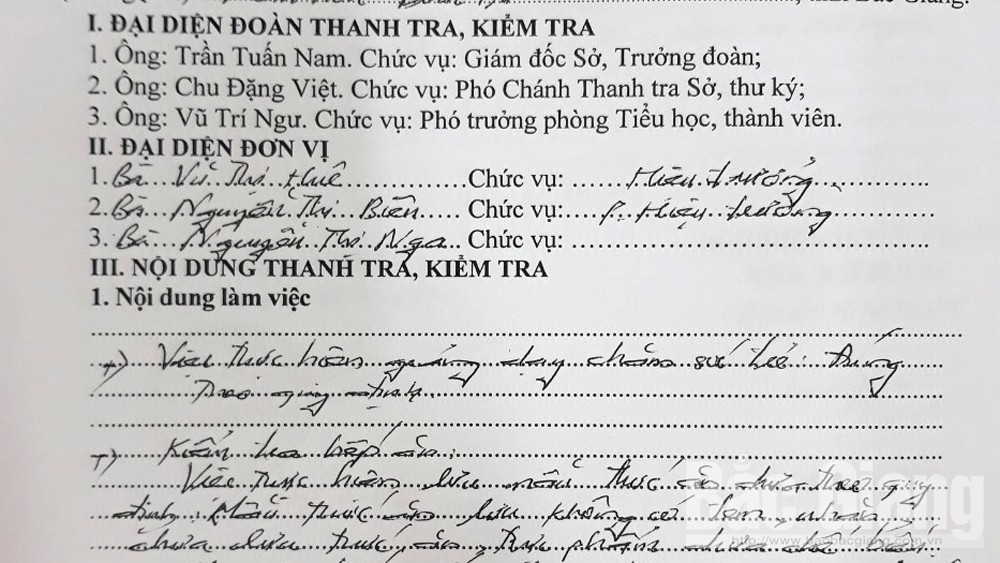 Bắc Giang.
I. ĐẠI DIỆN ĐOÀN THANH TRA, KIỂM TRA
1. Ông: Trần Tuấn Nam. Chức vụ: Giám đốc Sở, Trưởng đoàn;
2. Ông: Chu Đặng Việt. Chức vụ: Phó Chánh Thanh tra Sở, thư ký;
3. Ông: Vũ Trí Ngư. Chức vụ: Phó trưởng phòng Tiểu học, thành viên.
II. ĐẠI DIỆN ĐƠN VỊ
1. Bà Vũ Thị Huê Chức vụ: Hiệu trưởng
2. Bà Nguyễn Thị Biên Chức vụ: P. Hiệu trưởng
3. Bà Nguyễn Thị Nga Chức vụ:
III. NỘI DUNG THANH TRA, KIỂM TRA
1. Nội dung làm việc
+) Việc thực hiện giảng dạy chăm sóc trẻ: Đúng
theo quy định.
+) Kiểm tra bếp ăn:
Việc thực hiện lưu mẫu thức ăn chưa theo quy
định: Mẫu thức ăn lưu không có tem, nhãn,
chưa lưu thức ăn, thực phẩm
Bắc Giang
http://www.baobacgiang.com.vn